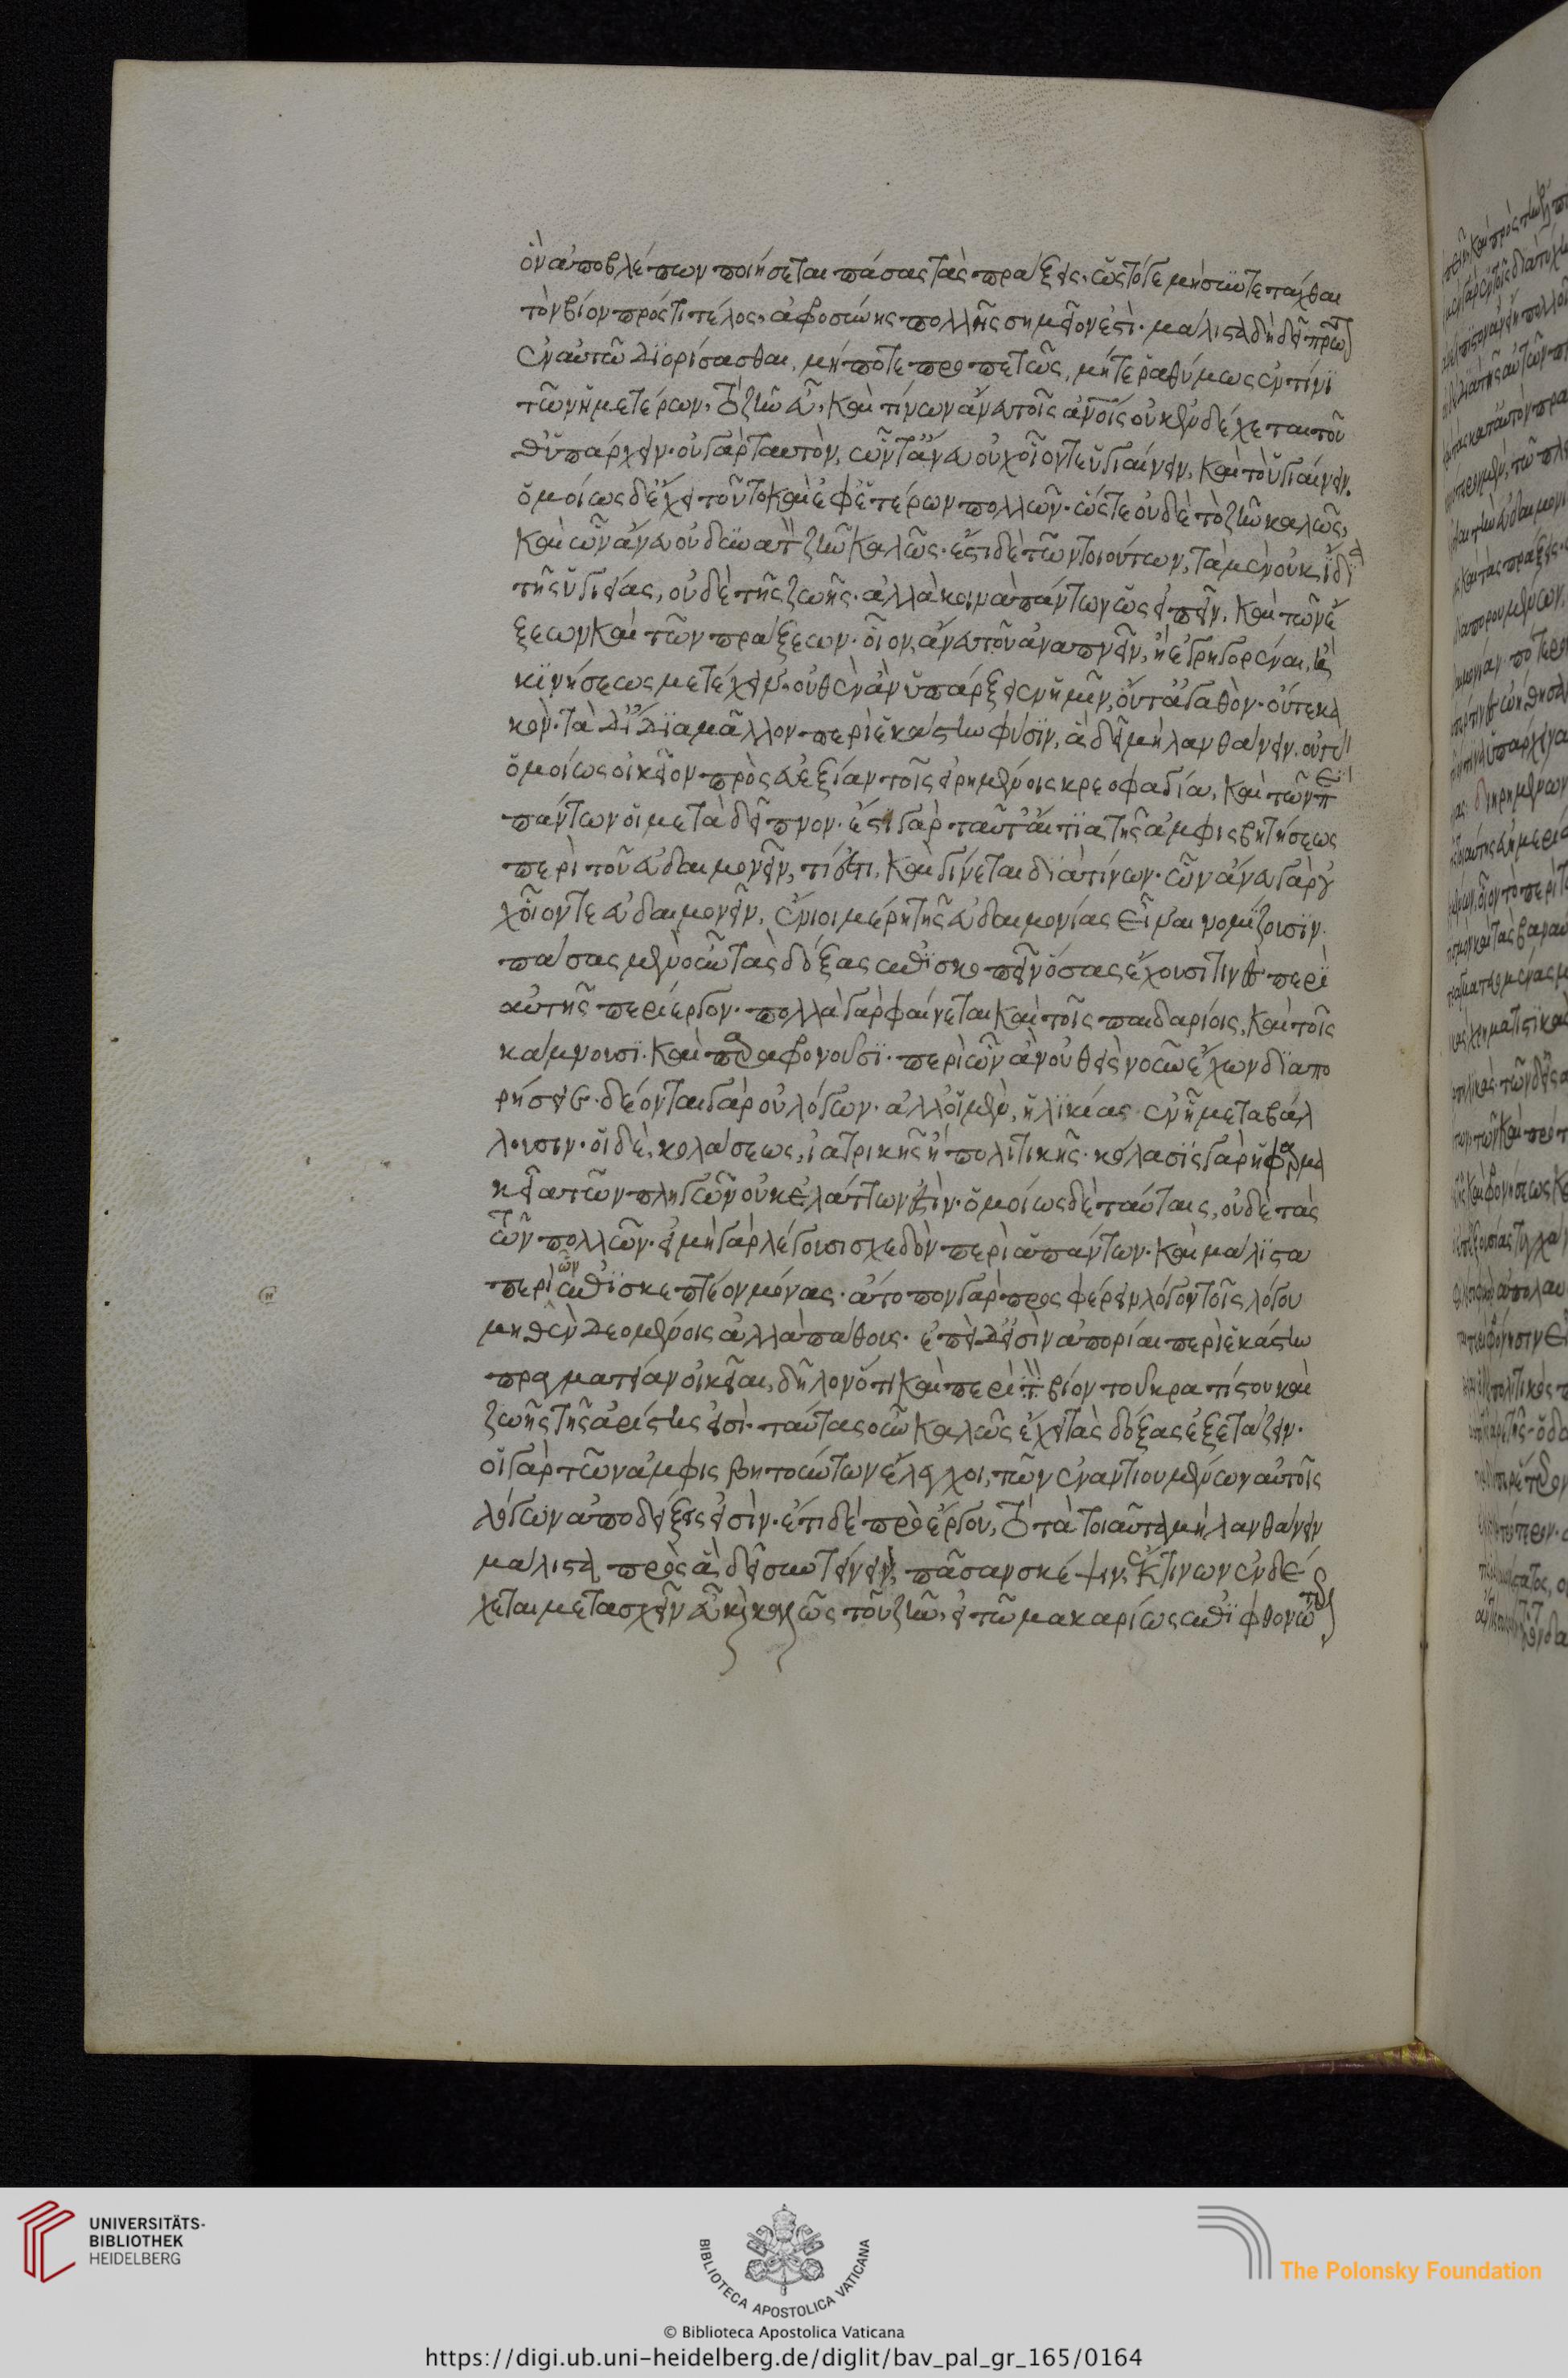 ὃν ἀποβλέπων ποιήσεται πάσας τὰς πράξεις· ὡς τό γε μὴ συντετάχθαι
τὸν βίον πρός τι τέλος, ἀφροσύνης πολλῆς σημεῖον ἐστὶ· μάλιστα δὴ δεῖ πρῶτον
ἐν αὐτῶ διορίσασθαι, μήποτε προπετῶς, μήτε ῥαθύμως ἐν τίνι
τῶν ἡμετέρων, τὸ ζῆν εὖ, καὶ τίνων ἄνευ τοῖς ἀνοις οὐκ ἐνδέχεται τοῦ
θ' ὑπάρχειν· οὐ γὰρ ταυτὸν, ὧν τ' ἄνευ οὐχ οἷον τε ὑγιαίνειν, καὶ τὸ ὑγιαίνειν.
ὁμοίως δ' ἔχει τοῦτο καὶ ἐφ' ἑτέρων πολλῶν· ὥστε οὐδὲ τὸ ζῆν καλῶς,
καὶ ὧν ἄνευ οὐ δυνατὸν ζῆν καλῶς· ἔστι δὲ τῶν τοιούτων, τὰ μὲν οὐκ ἴδια
τῆς ὑγιείας, οὐδὲ τῆς ζωῆς· ἀλλὰ κοινὰ πάντων ὡς εἰπεῖν, καὶ τῶν ἕ
ξεων καὶ τῶν πράξεων· οἷον, ἄνευ τοῦ ἀναπνεῖν, ἢ ἐγρηγορέναι, ἢ
κινήσεως μετέχειν, οὐθὲν ἂν ὑπάρξειεν ἡμῖν, οὔτ' ἀγαθὸν· οὔτε κα
κὸν· τὰ δ' ἴδια μᾶλλον περὶ ἑκάστην φύσιν, ἃ δεῖ μὴ λανθάνειν. οὐ γὰρ
ὁμοίως οἰκεῖον πρὸς εὐεξίαν τοῖς εἰρημένοις κρεοφαγία, καὶ τῶν περι
πάντων οἱ μετὰ δεῖπνον· ἔστι γὰρ ταῦτ' αἴτια τῆς ἀμφισβητήσεως
περὶ τοῦ εὐδαιμονεῖν, τί ἐστι, καὶ γίνεται διὰ τίνων· ὧν ἄνευ γὰρ οὐ
χ' οἷον τε εὐδαιμονεῖν, ἔνιοι μέρη τῆς εὐδαιμονίας εἶναι νομίζουσιν.
πάσας μὲν οὖν τὰς δόξας ἐπισκοπεῖν ὅσας ἔχουσί τινες περὶ
αὐτῆς περίεργον· πολλὰ γὰρ φαίνεται καὶ τοῖς παιδαρίοις, καὶ τοῖς
κάμνουσι. καὶ παραφρονοῦσι· περὶ ὧν ἂν οὐθεὶς νοῦν ἔχων διαπο
ρήσειεν· δέονται γὰρ οὐ λόγων· ἀλλ' οἱ μὲν, ἡλικίας ἐν ᾗ μεταβάλ
λουσιν· οἱ δὲ, κολάσεως, ἰατρικῆς ἢ πολιτικῆς· κόλασις γὰρ ἡ φαρμα
κεία τῶν πληγῶν οὐκ ἐλάττων ἐστὶν· ὁμοίως δὲ ταύταις, οὐδὲ τὰς
τῶν πολλῶν· εἰκῆ γὰρ λέγουσι σχεδὸν περὶ ἁπάντων· καὶ μάλιστα
περὶ ὧν ἐπισκεπτέον μόνας· ἄτοπον γὰρ προσφέρειν λόγον τοῖς λόγου
μηθὲν δεομένοις ἀλλὰ πάθους· ἐπεὶ δ' εἰσὶν ἀπορίαι περὶ ἑκάστην
πραγματείαν οἰκεῖαι, δῆλον ὅτι καὶ περὶ τὸν βίον τοῦ κρατίστου καὶ
ζωῆς τῆς ἀρίστης εἰσὶ· ταύτας οὖν καλῶς ἔχει τὰς δόξας ἐξετάζειν·
οἱ γὰρ τῶν ἀμφισβητούντων ἔλεγχοι, τῶν ἐναντιουμένων αὐτοῖς
λόγων ἀποδείξεις εἰσὶν· ἔτι δὲ πρὸ ἔργου, τὸ τὰ τοιαῦτα μὴ λανθάνειν
μάλιστα πρὸς ἃ δεῖ συντείνειν πᾶσαν σκέψιν, ἐκ τίνων ἐνδέ
χεται μετασχεῖν εὖ καὶ καλῶς τοῦ ζῆν, εἰ τῶ μακαρίως ἐπιφθονώτερον
UNIVERSITÄTS-
BIBLIOTHEK
HEIDELBERG
BIBLIOTECA APOSTOLICA VATICANA
The Polonsky Foundation
© Biblioteca Apostolica Vaticana
https://digi.ub.uni-heidelberg.de/diglit/bav_pal_gr_165/0164